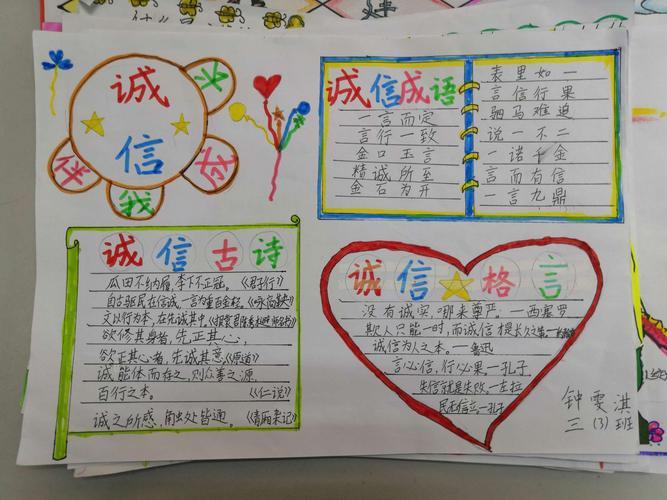 诚信
伴我成长
诚信成语
一言而定
言行一致
金口玉言
精诚所至
金石为开
表里如一
言信行果
驷马难追
说一不二
诺千金
言而有信
一言九鼎
诚信古诗
瓜田不纳履,李下不正冠。《君子行》
自古驱民在信诚,一言为重百金轻。《咏商鞅》
文以行为本,在先诚其中。
欲修其身者,先正其心;
欲正其心者,先诚其意。《原道》
诚能体而存之,则众善之源,
百行之本。 《仁说》
诚之所感,触处皆通。
诚信格言
没有诚实,哪来尊严。一西塞罗
欺人只能一时,而诚信
诚信为人之本。一鲁迅
言必信,行必果一孔子
失信就是失败。一左拉
民无信立一孔子
钟雯淇
三(3)班